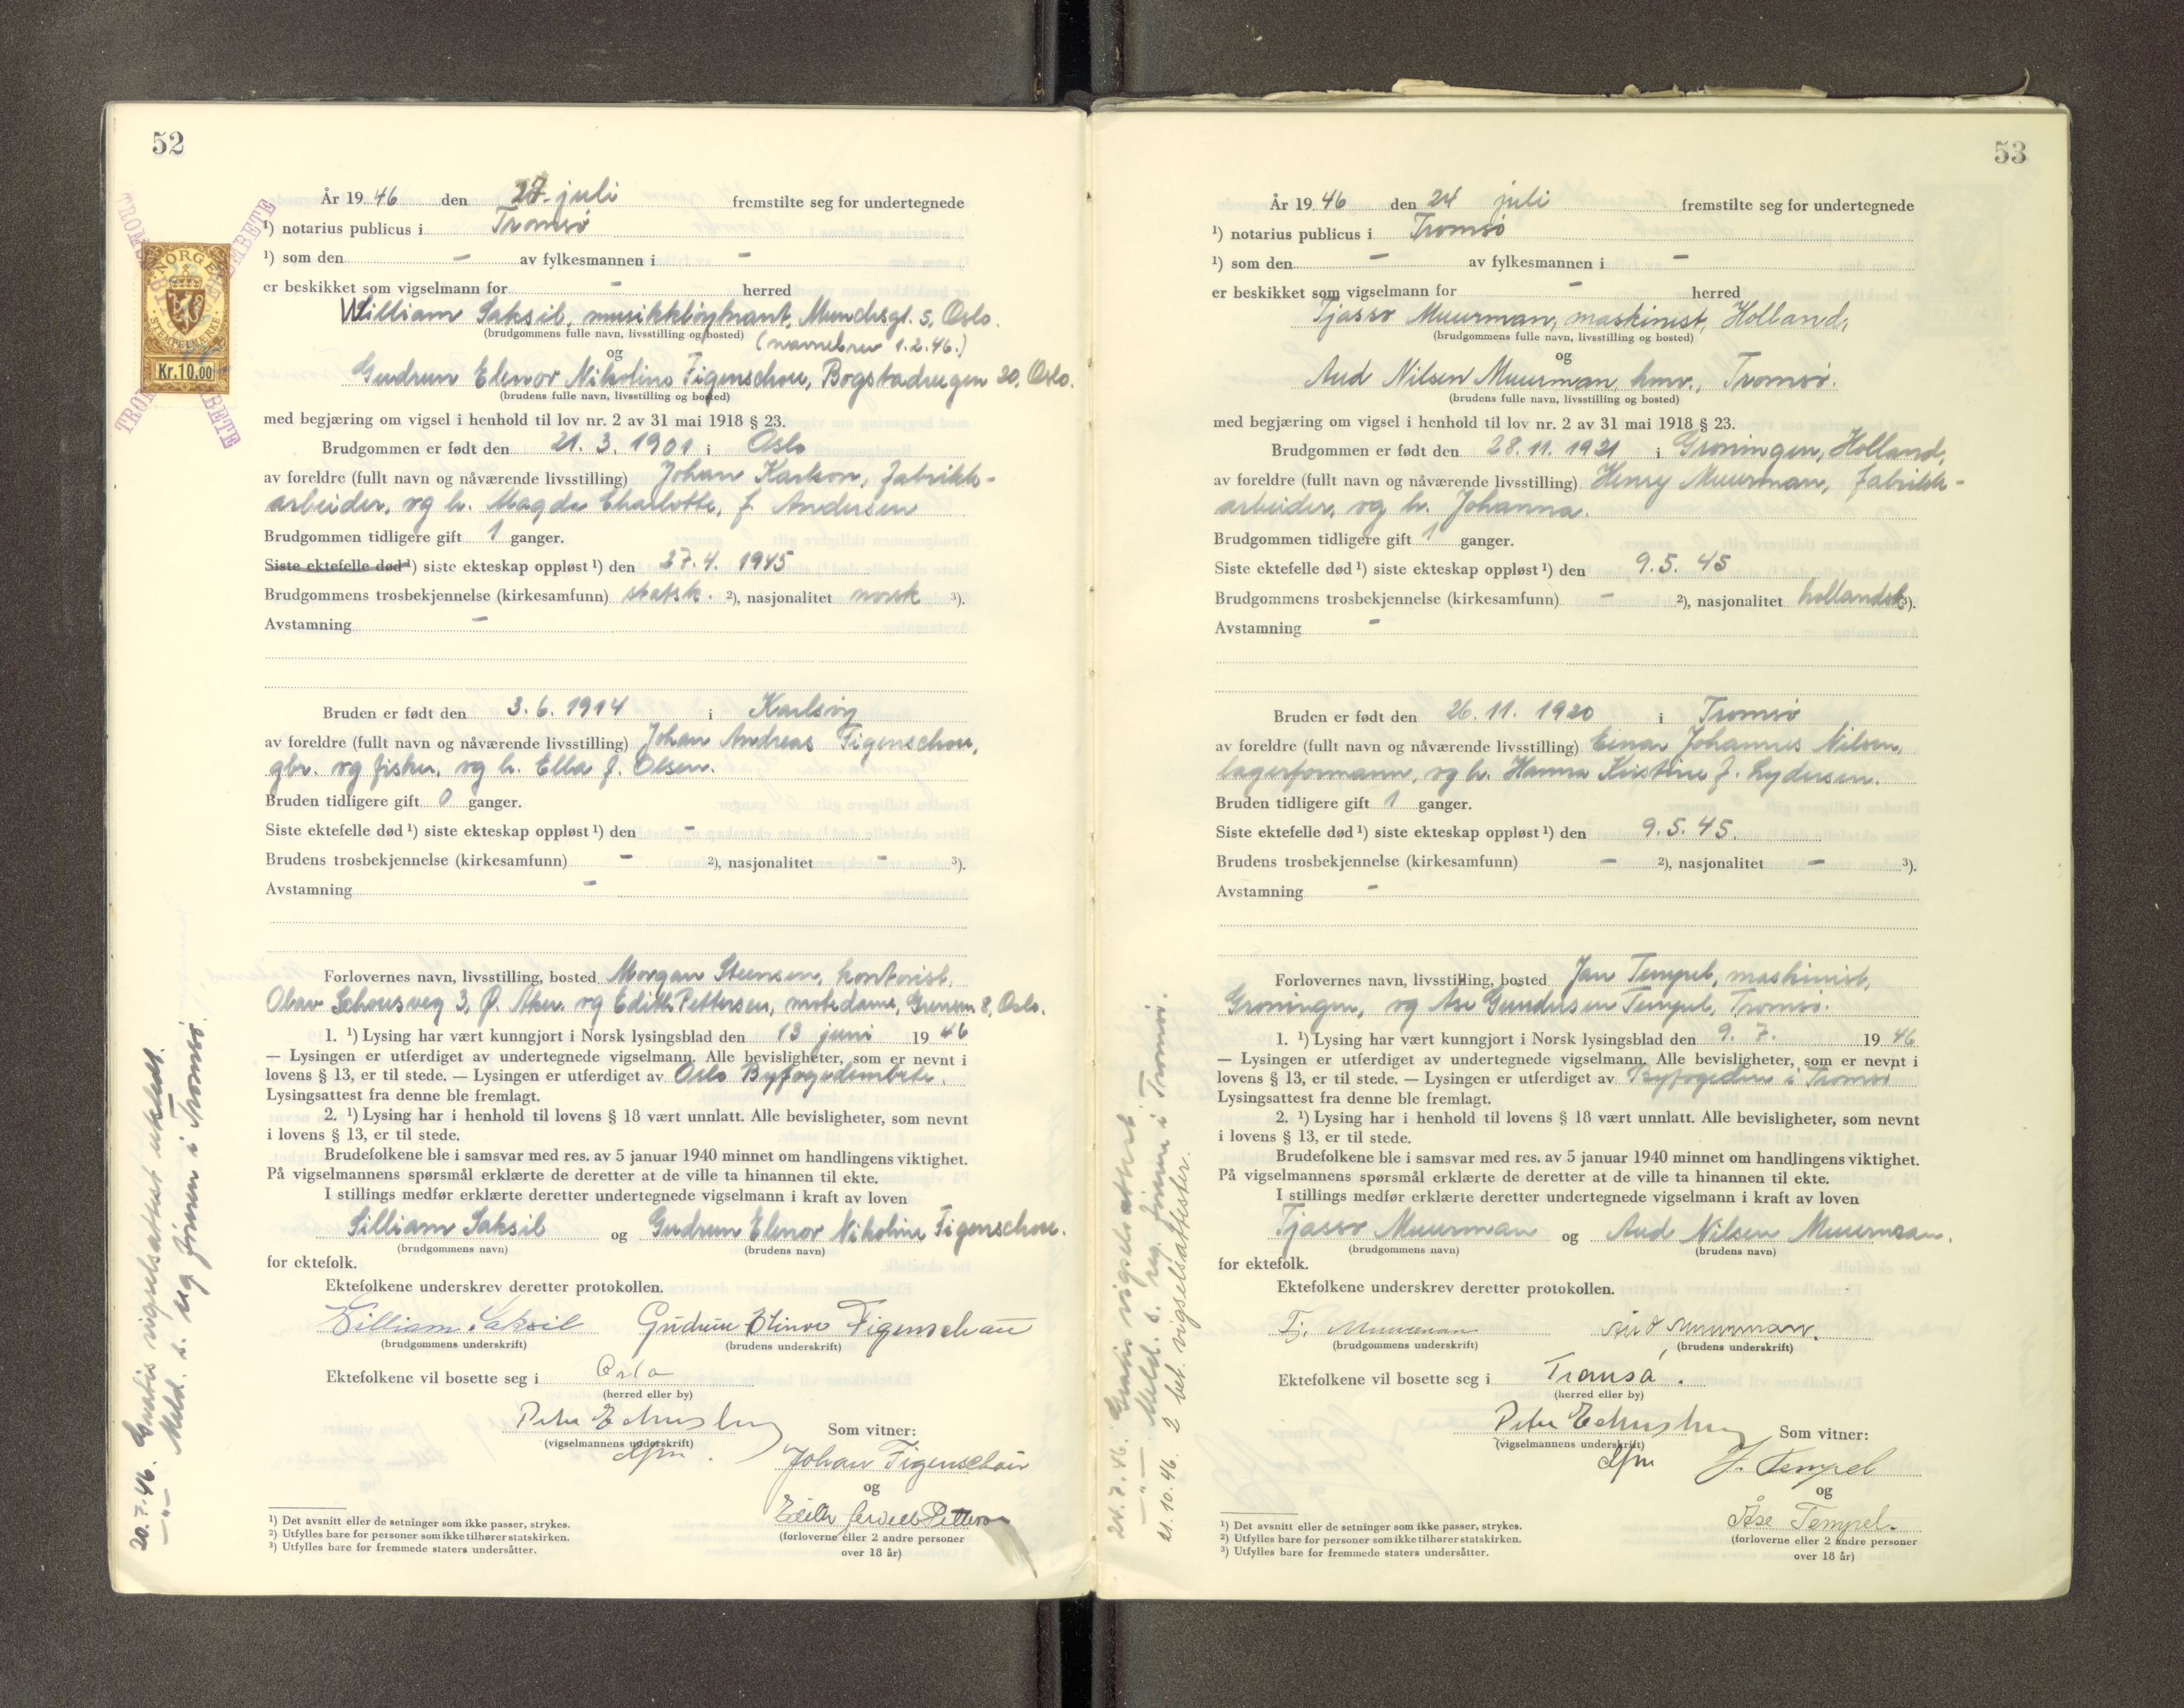 52
År 1946 den 20. juli fremstilte seg for undertegnede
¹) notarius publicus i Tromsø
¹) som den - av fylkesmannen i -
er beskikket som vigselmann for - herred
William Saksil, musikkløytnant, Munchsgt. 5, Oslo.
(brudgommens fulle navn, livsstilling og bosted) (navnebrev 1.2.46.)
og
Gudrun Elenor Nikoline Figenschou, Bogstadvegen 20, Oslo.
(brudens fulle navn, livsstilling og bosted)
med begjæring om vigsel i henhold til lov nr. 2 av 31 mai 1918 § 23.
Brudgommen er født den 21. 3. 1901 i Oslo
av foreldre (fullt navn og nåværende livsstilling) Johan Karlson, fabrikk-
arbeider, og h. Magda Charlotte, f. Andersen
Brudgommen tidligere gift 1 ganger.
Siste ektefelle død ¹) siste ekteskap oppløst ¹) den 27. 4. 1945
Brudgommens trosbekjennelse (kirkesamfunn) statsk. ²), nasjonalitet norsk ³).
Avstamning -
Bruden er født den 3. 6. 1914 i Karlsøy
av foreldre (fullt navn og nåværende livsstilling) Johan Andreas Figenschou,
gbr. og fisker, og h. Ella f. Olsen.
Bruden tidligere gift 0 ganger.
Siste ektefelle død ¹) siste ekteskap oppløst ¹) den -
Brudens trosbekjennelse (kirkesamfunn) - ²), nasjonalitet - ³).
Avstamning -
Forlovernes navn, livsstilling, bosted Morgan Steensen, kontorist,
Olav Schousveg 3, Ø. Aker og Edith Pettersen, motedame, Grensen 8, Oslo.
1. ¹) Lysing har vært kunngjort i Norsk lysingsblad den 13 juni 1946
— Lysingen er utferdiget av undertegnede vigselmann. Alle bevisligheter, som er nevnt i
lovens § 13, er til stede. — Lysingen er utferdiget av Oslo Byfogdembete.
Lysingsattest fra denne ble fremlagt.
2. ¹) Lysing har i henhold til lovens § 18 vært unnlatt. Alle bevisligheter, som nevnt
i lovens § 13, er til stede.
Brudefolkene ble i samsvar med res. av 5 januar 1940 minnet om handlingens viktighet.
På vigselmannens spørsmål erklærte de deretter at de ville ta hinannen til ekte.
I stillings medfør erklærte deretter undertegnede vigselmann i kraft av loven
William Saksil og Gudrun Elenor Nikoline Figenschou.
(brudgommens navn) (brudens navn)
for ektefolk.
Ektefolkene underskrev deretter protokollen.
William Saksil Gudrun Elinor Figenschau
(brudgommens underskrift) (brudens underskrift)
Ektefolkene vil bosette seg i Oslo
(herred eller by)
(vigselmannens underskrift)
Som vitner:
Johan Figenschau
og
(forloverne eller 2 andre personer
over 18 år)
¹) Det avsnitt eller de setninger som ikke passer, strykes.
²) Utfylles bare for personer som ikke tilhører statskirken.
³) Utfylles bare for fremmede staters undersåtter.
20.7.46. Gratis vigselsattest utstedt.
—"— Meld. s. reg. føreren i Tromsø.
NORGE
STEMPELMERKE
Kr. 10,00
53
År 1946 den 24 juli fremstilte seg for undertegnede
¹) notarius publicus i Tromsø
¹) som den - av fylkesmannen i -
er beskikket som vigselmann for - herred
Tjasso Muurman, maskinist, Holland,
(brudgommens fulle navn, livsstilling og bosted)
og
Aud Nilsen Muurman, hmv., Tromsø.
(brudens fulle navn, livsstilling og bosted)
med begjæring om vigsel i henhold til lov nr. 2 av 31 mai 1918 § 23.
Brudgommen er født den 28. 11. 1921 i Groningen, Holland,
av foreldre (fullt navn og nåværende livsstilling) Henry Muurman, fabrikk-
arbeider, og h. Johanna.
Brudgommen tidligere gift 1 ganger.
Siste ektefelle død ¹) siste ekteskap oppløst ¹) den 9. 5. 45
Brudgommens trosbekjennelse (kirkesamfunn) - ²), nasjonalitet hollandsk ³).
Avstamning -
Bruden er født den 26. 11. 1920 i Tromsø
av foreldre (fullt navn og nåværende livsstilling) Einar Johannes Nilsen,
lagerformann, og h. Hanna Kristine f. Lydersen.
Bruden tidligere gift 1 ganger.
Siste ektefelle død ¹) siste ekteskap oppløst ¹) den 9. 5. 45.
Brudens trosbekjennelse (kirkesamfunn) - ²), nasjonalitet - ³).
Avstamning -
Forlovernes navn, livsstilling, bosted Jan Tempel, maskinist,
Groningen, og Åse Gundersen Tempel, Tromsø.
1. ¹) Lysing har vært kunngjort i Norsk lysingsblad den 9. 7. 1946
— Lysingen er utferdiget av undertegnede vigselmann. Alle bevisligheter, som er nevnt i
lovens § 13, er til stede. — Lysingen er utferdiget av Byfogden i Tromsø
Lysingsattest fra denne ble fremlagt.
2. ¹) Lysing har i henhold til lovens § 18 vært unnlatt. Alle bevisligheter, som nevnt
i lovens § 13, er til stede.
Brudefolkene ble i samsvar med res. av 5 januar 1940 minnet om handlingens viktighet.
På vigselmannens spørsmål erklærte de deretter at de ville ta hinannen til ekte.
I stillings medfør erklærte deretter undertegnede vigselmann i kraft av loven
Tjasso Muurman og Aud Nilsen Muurman.
(brudgommens navn) (brudens navn)
for ektefolk.
Ektefolkene underskrev deretter protokollen.
Tj. Muurman Aud Muurman.
(brudgommens underskrift) (brudens underskrift)
Ektefolkene vil bosette seg i Tromsø.
(herred eller by)
(vigselmannens underskrift)
Som vitner:
J. Tempel
og
Åse Tempel.
(forloverne eller 2 andre personer
over 18 år)
¹) Det avsnitt eller de setninger som ikke passer, strykes.
²) Utfylles bare for personer som ikke tilhører statskirken.
³) Utfylles bare for fremmede staters undersåtter.
24.7.46. Gratis vigselsattest
—"— Meld. s. reg. føreren i Tromsø.
21.10.46. 2 bet. vigselsattester.